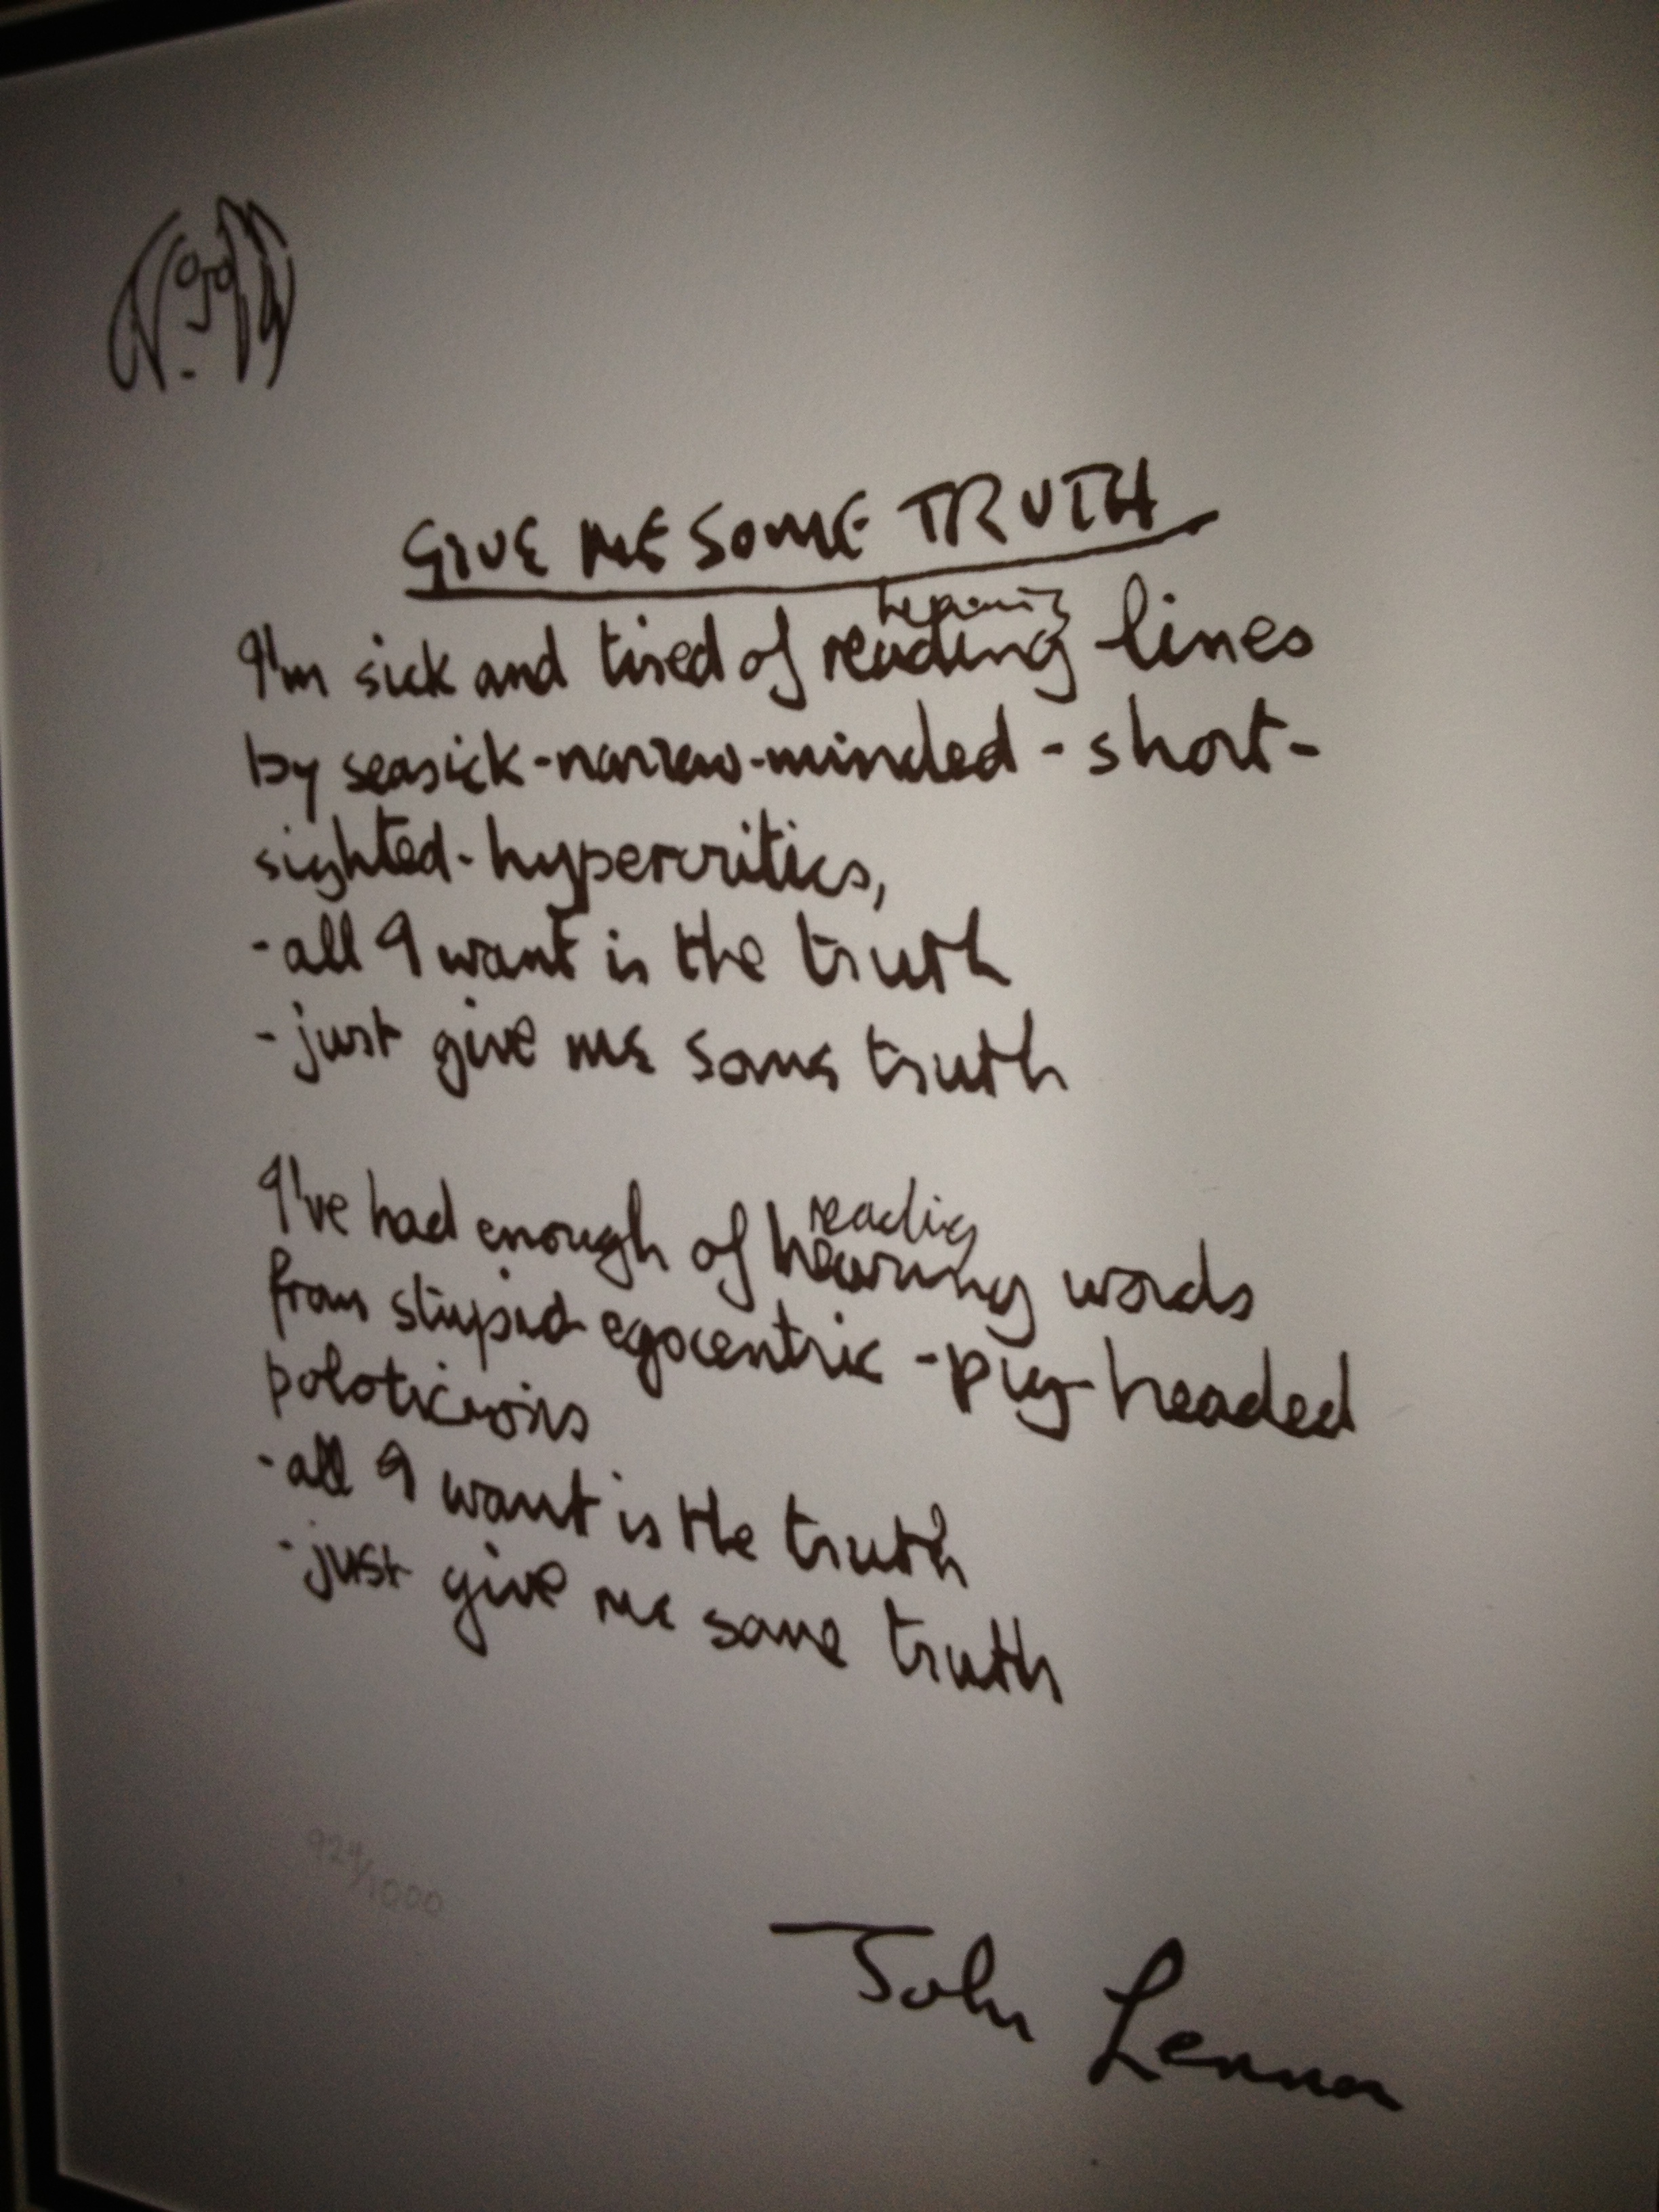 GIVE ME SOME TRUTH
hearing
I'm sick and tired of reading lines
by seasick-narrow-minded-short-
sighted-hypercritics,
-all I want is the truth
-just give me some truth
reading
I've had enough of hearing words
from stupid-egocentric-pig-headed
poloticians
-all I want is the truth
-just give me some truth
924/1000
John Lennon